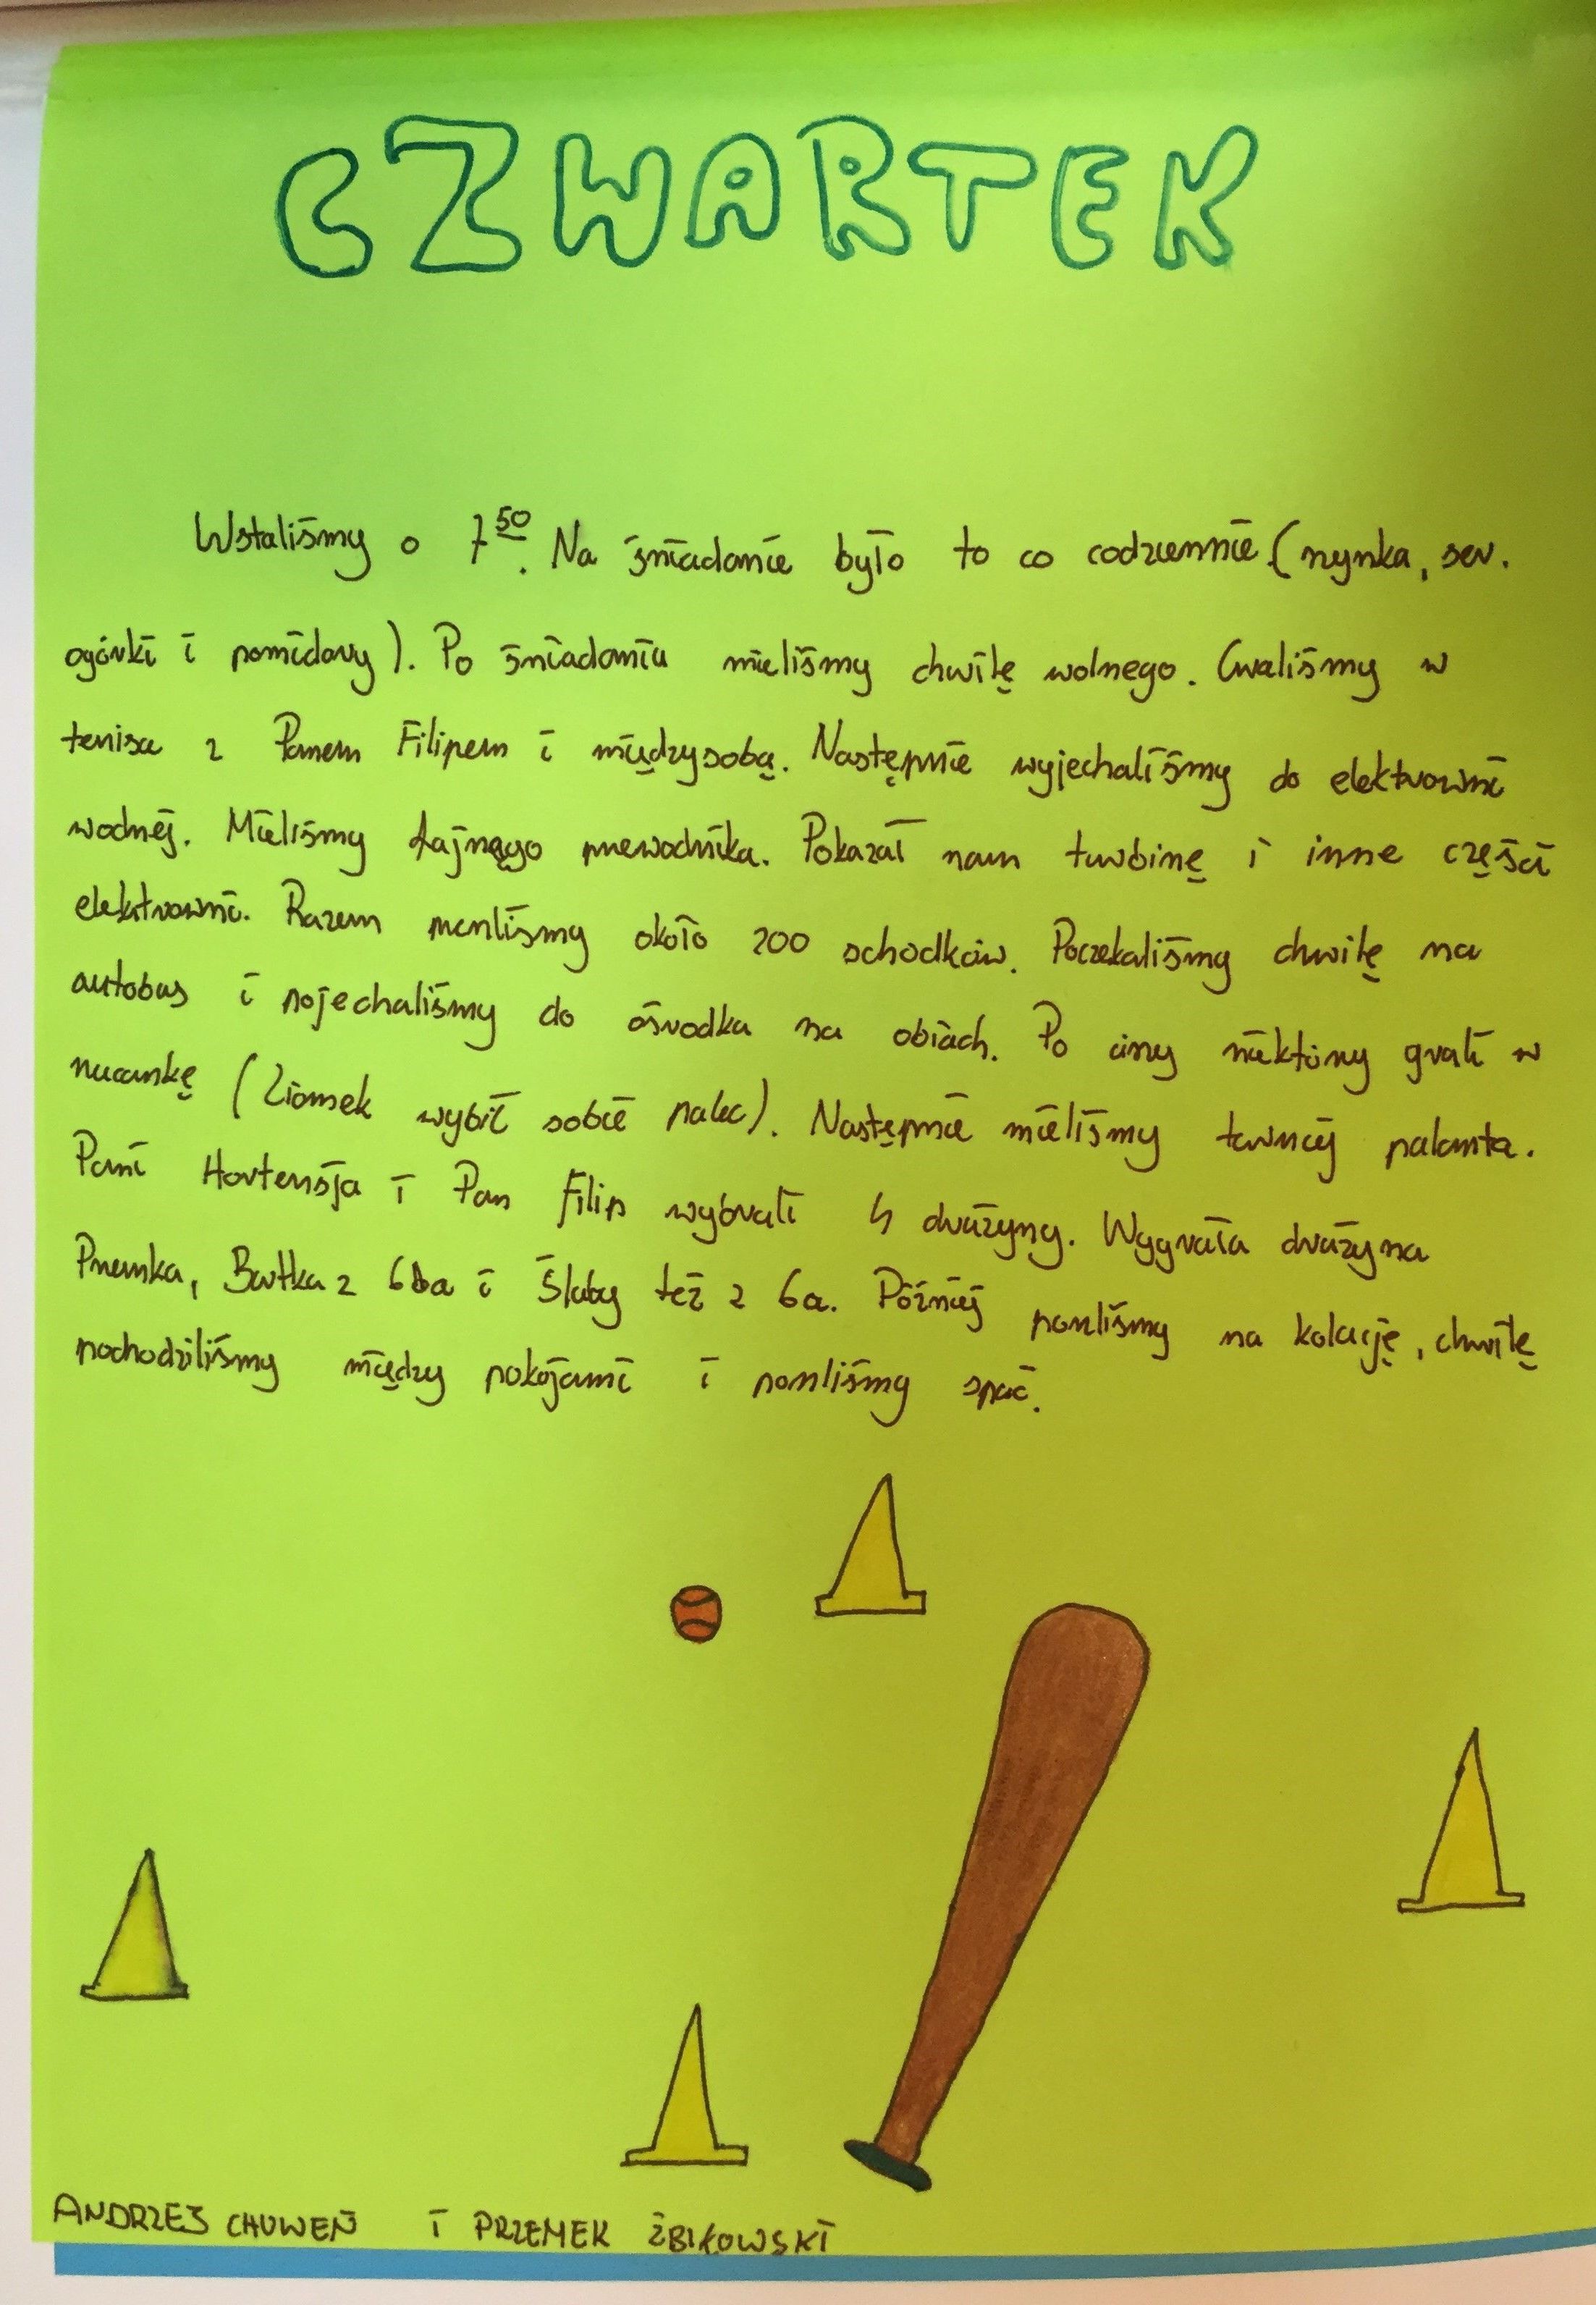 CZWARTEK
Wstaliśmy o 7⁵⁰. Na śniadanie było to co codziennie (szynka, ser,
ogórki i pomidory). Po śniadaniu mieliśmy chwilę wolnego. Graliśmy w
tenisa z Panem Filipem i między sobą. Następnie wyjechaliśmy do elektrowni
wodnej. Mieliśmy fajnego przewodnika. Pokazał nam turbinę i inne części
elektrowni. Razem przeszliśmy około 200 schodków. Poczekaliśmy chwilę na
autobus i pojechaliśmy do ośrodka na obiach. Po ciszy niektórzy grali w
rzucankę (Ziomek wybił sobie palec). Następnie mieliśmy turniej palanta.
Pani Hortensja i Pan Filip wybrali 4 drużyny. Wygrała drużyna
Przemka, Bartka z 6a i Śluby też z 6a. Później poszliśmy na kolację, chwilę
pochodziliśmy między pokojami i poszliśmy spać.
ANDRZEJ CHUWEŃ I PRZEMEK ŻBIKOWSKI